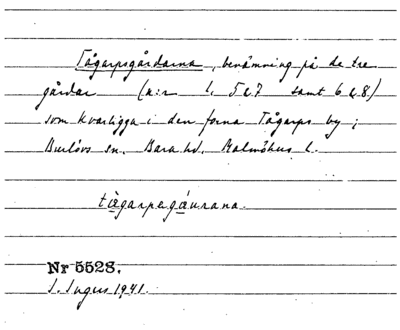 Tågarpsgårdarna, benämning på de tre
gårdar (n:r 1, 5&7 samt 6&8)
som kvarligga i den forna Tågarps by i
Burlövs sn. Bara hd. Malmöhus l.
tågarpsgáurana.
Nr 5528.
I. Ingers 1941.